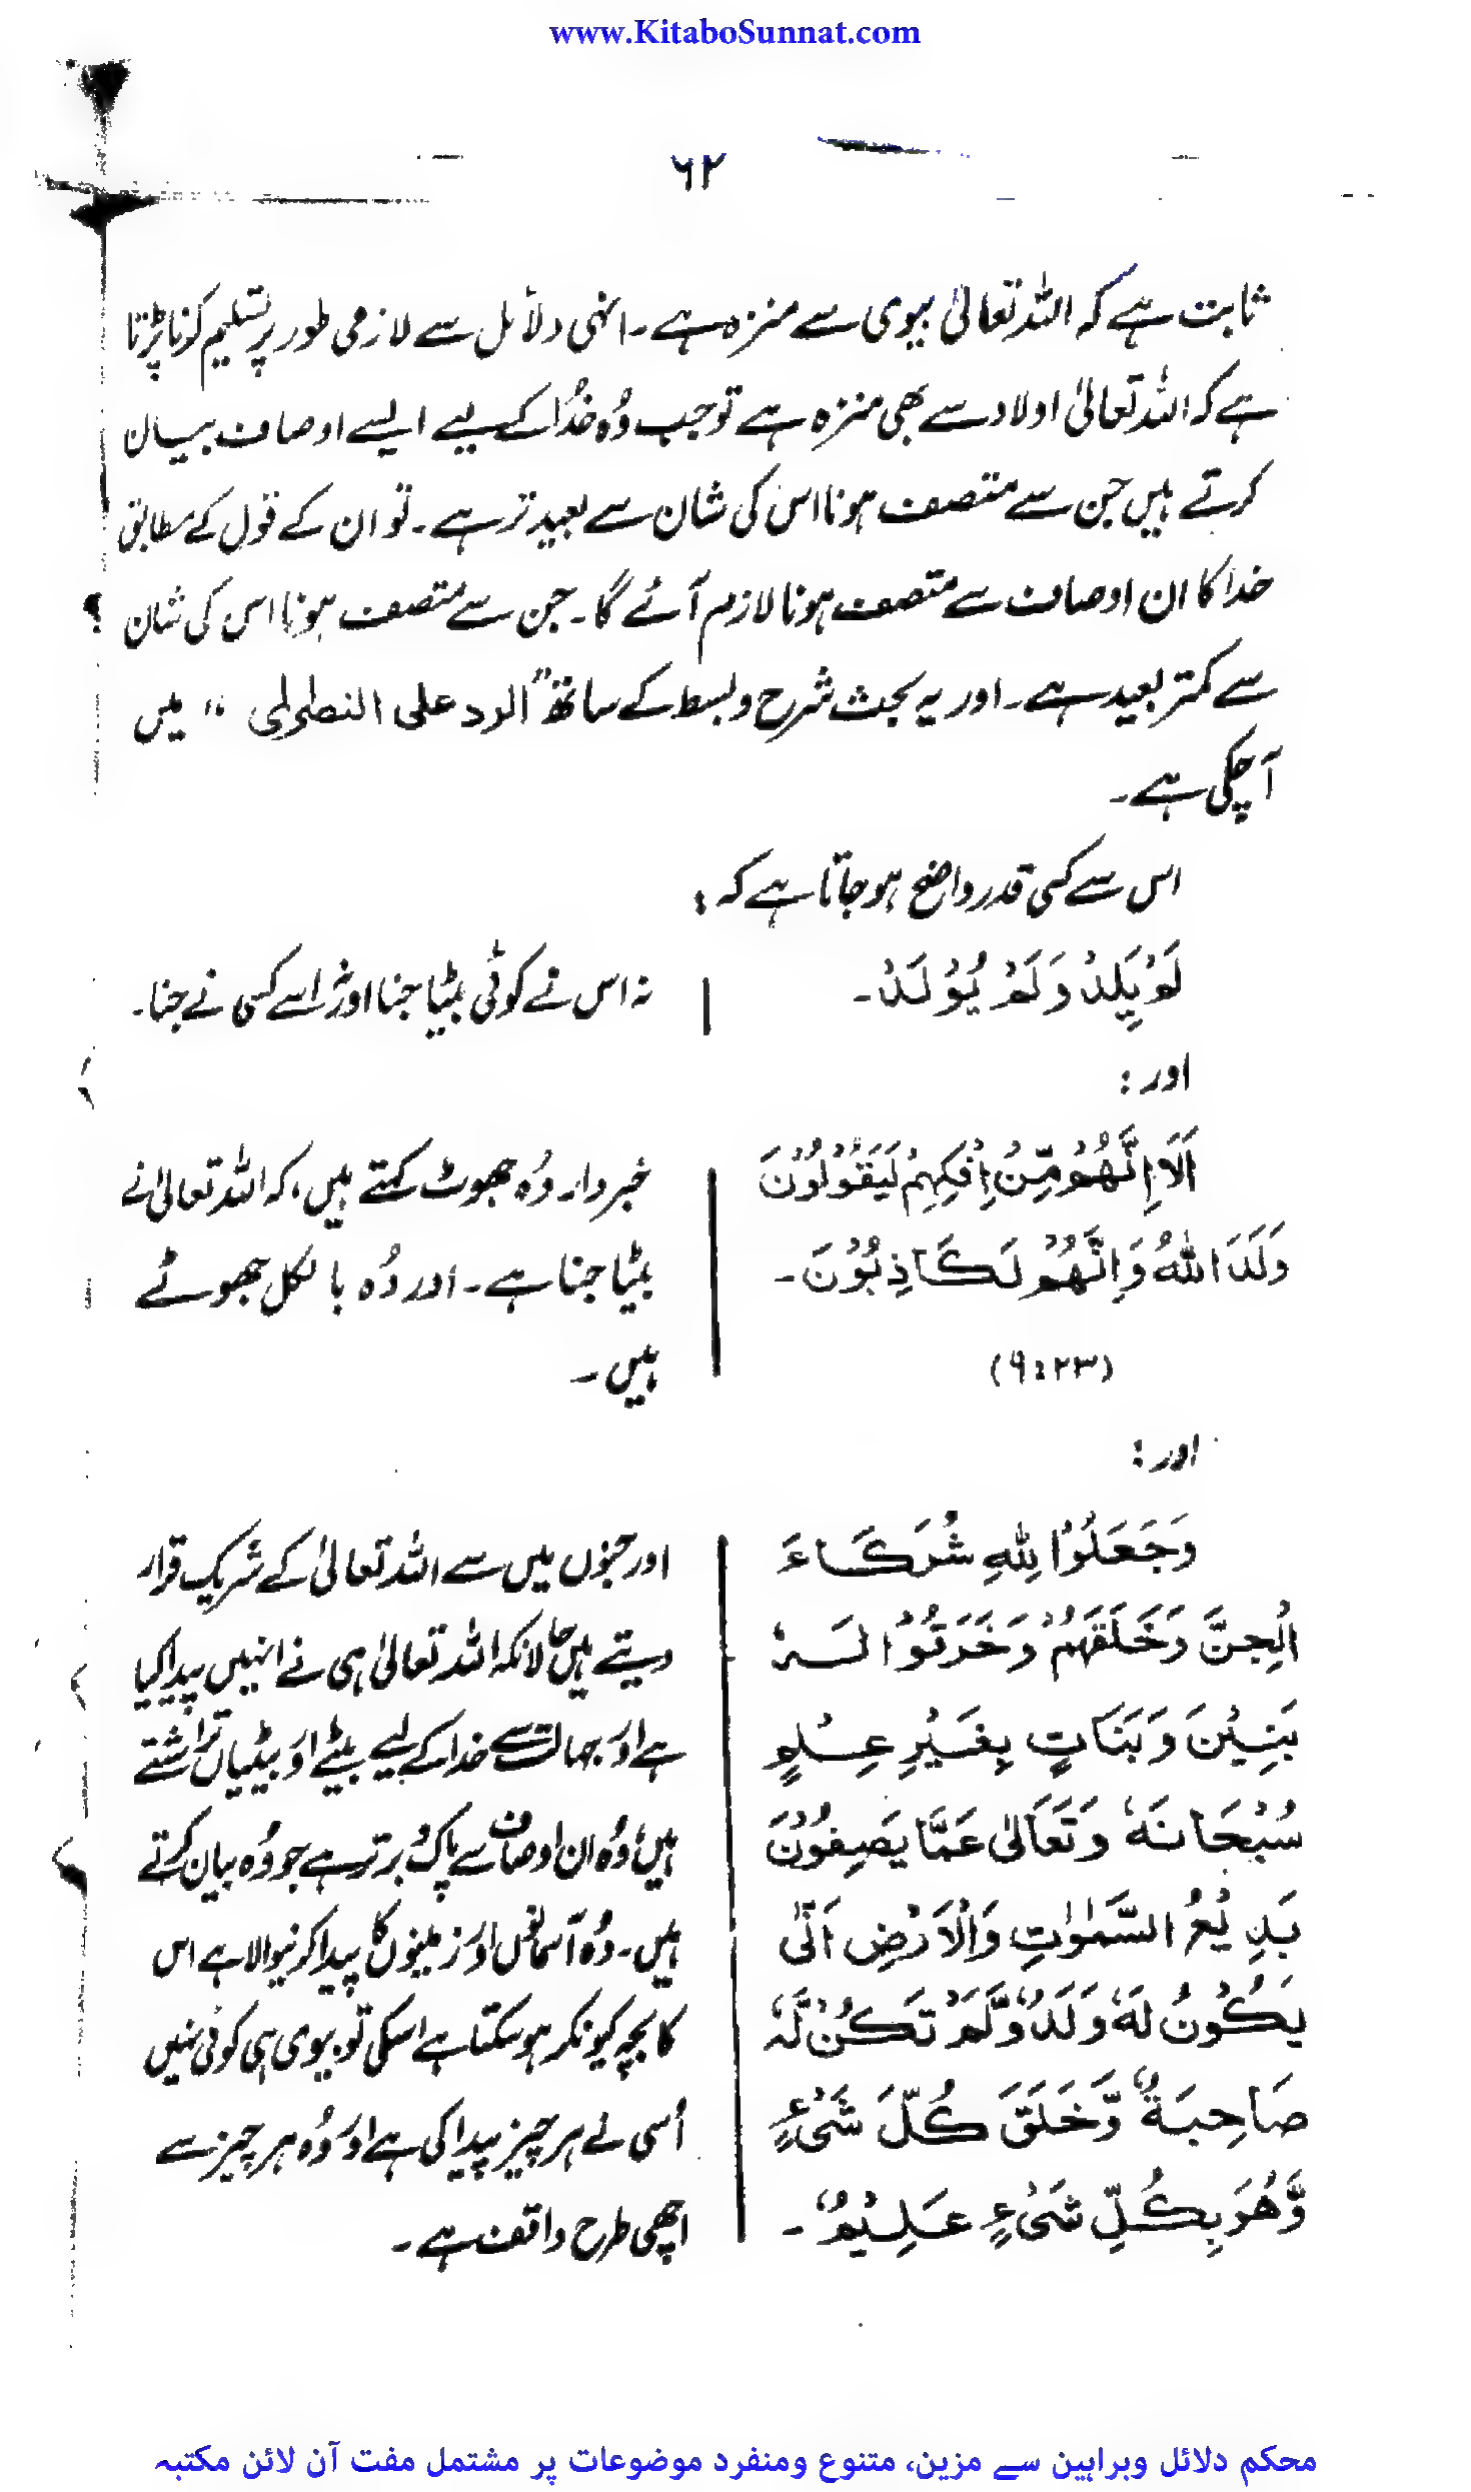 www.KitaboSunnat.com
۶۲
ثابت ہے کہ اللہ تعالیٰ بیوی سے منزہ ہے۔ انہی دلائل سے لازمی طور پر تسلیم کرنا پڑتا
ہے کہ اللہ تعالیٰ اولاد سے بھی منزہ ہے تو جب وُہ خدُا کے لیے ایسے اوصاف بیان
کرتے ہیں جن سے متصف ہونا اس کی شان سے بعید تر ہے۔ تو ان کے قول کے مطابق
خدا کا ان اوصاف سے متصف ہونا لازم آئے گا۔ جن سے متصف ہونا اس کی شان
سے کمتر بعید ہے۔ اور یہ بحث شرح و بسط کے ساتھ "الرد علی النطولی" میں
آ چکی ہے۔
اس سے کسی قدر واضح ہو جاتا ہے کہ :
لَمْ یَلِدْ وَلَمْ یُوْلَدْ۔
نہ اس نے کوئی بیٹا جنا اور نہ اسے کسی نے جنا۔
اور :
اَلَا اِنَّهُمْ مِّنْ اِفْكِهِمْ لَيَقُوْلُوْنَ
وَلَدَ اللّٰهُ وَاِنَّهُمْ لَكَاذِبُوْنَ۔
(۹:۲۳)
خبردار وُہ جھوٹ کہتے ہیں، کہ اللہ تعالیٰ نے
بیٹا جنا ہے۔ اور وُہ بالکل جھوٹے
ہیں۔
اور :
وَجَعَلُوْا لِلّٰهِ شُرَكَاءَ
الْجِنَّ وَخَلَقَهُمْ وَخَرَقُوْا لَهٗ
بَنِيْنَ وَبَنَاتٍ بِغَيْرِ عِلْمٍ
سُبْحَانَهٗ وَتَعَالٰى عَمَّا يَصِفُوْنَ
بَدِيْعُ السَّمٰوٰتِ وَالْاَرْضِ اَنّٰى
يَكُوْنُ لَهٗ وَلَدٌ وَّلَمْ تَكُنْ لَّهٗ
صَاحِبَةٌ وَّخَلَقَ كُلَّ شَىْءٍ
وَّهُوَ بِكُلِّ شَىْءٍ عَلِيْمٌ۔
اور جنوں میں سے اللہ تعالیٰ کے شریک قرار
دیتے ہیں حالانکہ اللہ تعالیٰ ہی نے انہیں پیدا کیا
ہے اور جہالت سے خدا کے لیے بیٹے اور بیٹیاں تراشتے
ہیں وُہ ان اوصاف سے پاک و برتر ہے جو وُہ بیان کرتے
ہیں۔ وُہ آسمانوں اور زمینوں کا پیدا کرنیوالا ہے اس
کا بچہ کیونکر ہو سکتا ہے اسکی تو بیوی ہی کوئی نہیں
اُسی نے ہر چیز پیدا کی ہے اور وُہ ہر چیز سے
اچھی طرح واقف ہے۔
محکم دلائل وبراہین سے مزین، متنوع ومنفرد موضوعات پر مشتمل مفت آن لائن مکتبہ